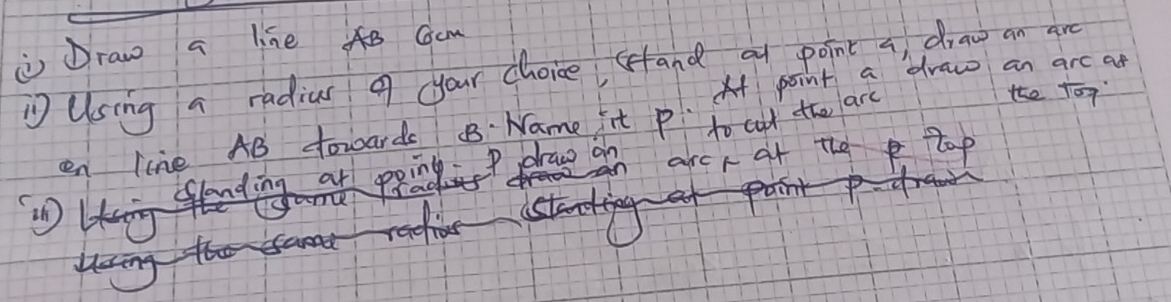 i) Draw a line AB 6cm
ii) Using a radius of your choice, stand at point a, draw an arc
on line AB towards B. Name it P. At point a draw an arc at the top.
iii) Standing at point P draw an arc at the top to cut the arc
Using the same radius draw an
Using the same radius standing at point P draw